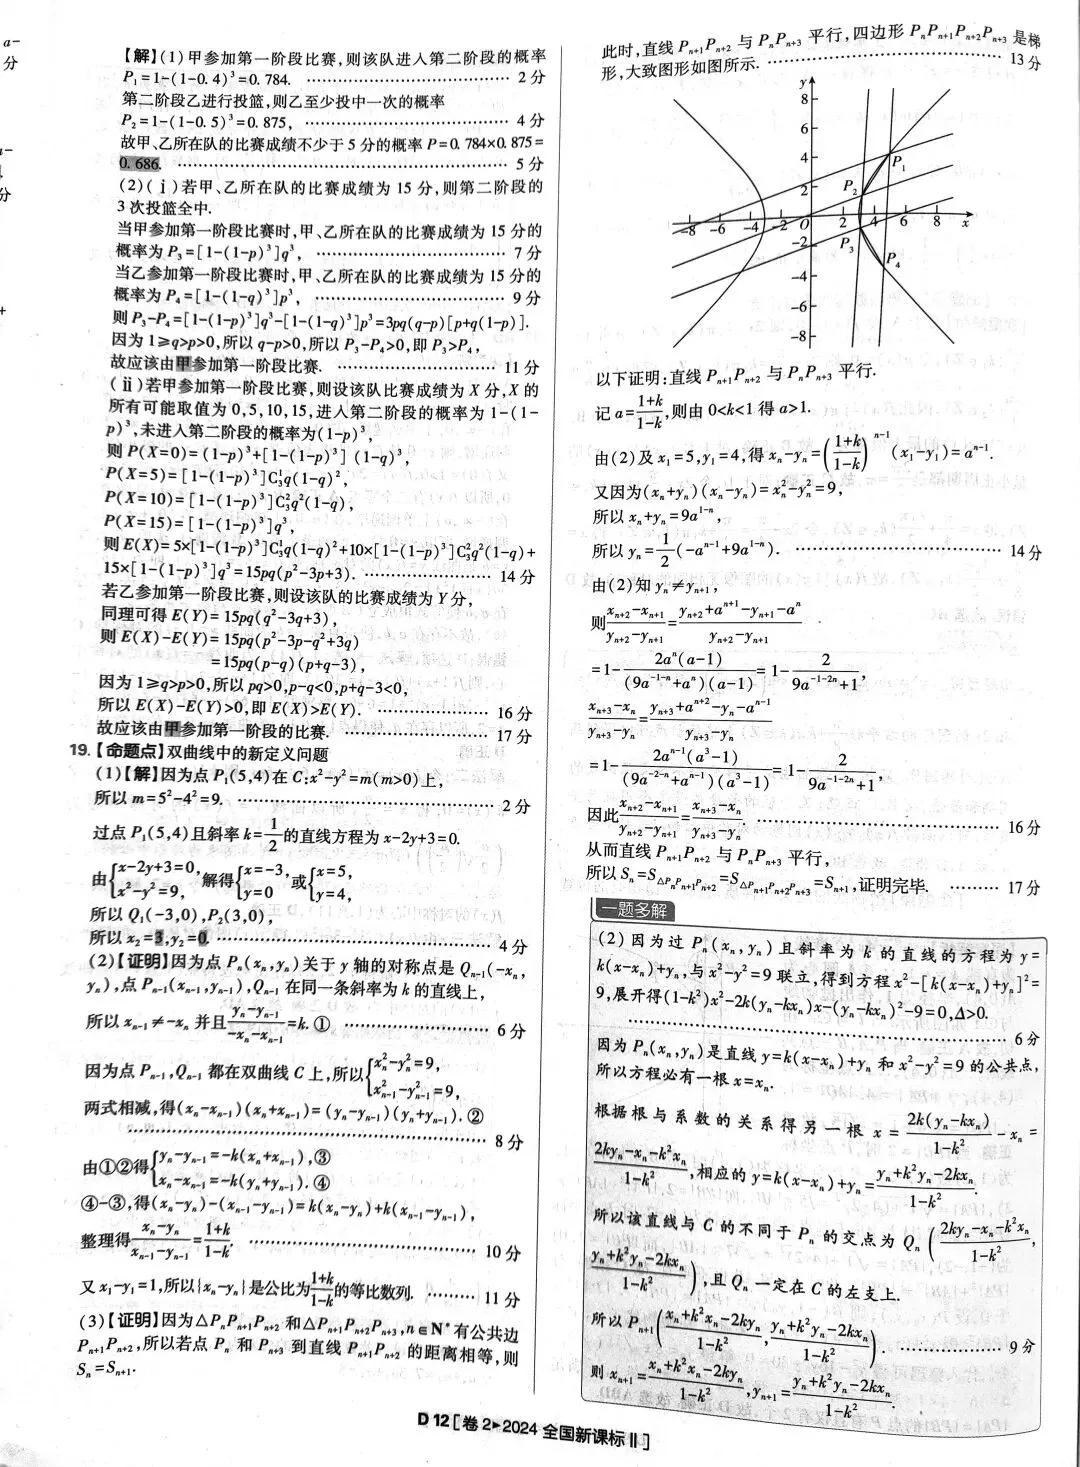 a-
分
a-
分
+
【解】(1)甲参加第一阶段比赛,则该队进入第二阶段的概率
P₁=1-(1-0.4)³=0.784. …… 2分
第二阶段乙进行投篮,则乙至少投中一次的概率
P₂=1-(1-0.5)³=0.875, …… 4分
故甲、乙所在队的比赛成绩不少于5分的概率P=0.784×0.875=
0.686. …… 5分
(2)(ⅰ)若甲、乙所在队的比赛成绩为15分,则第二阶段的
3次投篮全中.
当甲参加第一阶段比赛时,甲、乙所在队的比赛成绩为15分的
概率为P₃=[1-(1-p)³]q³, …… 7分
当乙参加第一阶段比赛时,甲、乙所在队的比赛成绩为15分的
概率为P₄=[1-(1-q)³]p³, …… 9分
则P₃-P₄=[1-(1-p)³]q³-[1-(1-q)³]p³=3pq(q-p)[p+q(1-p)].
因为1≥q>p>0,所以q-p>0,所以P₃-P₄>0,即P₃>P₄,
故应该由甲参加第一阶段比赛. …… 11分
(ⅱ)若甲参加第一阶段比赛,则设该队比赛成绩为X分,X的
所有可能取值为0,5,10,15,进入第二阶段的概率为1-(1-
p)³,未进入第二阶段的概率为(1-p)³,
则P(X=0)=(1-p)³+[1-(1-p)³](1-q)³,
P(X=5)=[1-(1-p)³]C₃¹q(1-q)²,
P(X=10)=[1-(1-p)³]C₃²q²(1-q),
P(X=15)=[1-(1-p)³]q³,
则E(X)=5×[1-(1-p)³]C₃¹q(1-q)²+10×[1-(1-p)³]C₃²q²(1-q)+
15×[1-(1-p)³]q³=15pq(p²-3p+3). …… 14分
若乙参加第一阶段比赛,则设该队的比赛成绩为Y分,
同理可得E(Y)=15pq(q²-3q+3),
则E(X)-E(Y)=15pq(p²-3p-q²+3q)
=15pq(p-q)(p+q-3),
因为1≥q>p>0,所以pq>0,p-q<0,p+q-3<0,
所以E(X)-E(Y)>0,即E(X)>E(Y). …… 16分
故应该由甲参加第一阶段的比赛. …… 17分
19.【命题点】双曲线中的新定义问题
(1)【解】因为点P₁(5,4)在C:x²-y²=m(m>0)上,
所以m=5²-4²=9. …… 2分
过点P₁(5,4)且斜率k=1/2的直线方程为x-2y+3=0.
由{x-2y+3=0, x²-y²=9, 解得{x=-3, y=0 或{x=5, y=4,
所以Q₁(-3,0),P₂(3,0),
所以x₂=3,y₂=0. …… 4分
(2)【证明】因为点Pₙ(xₙ,yₙ)关于y轴的对称点是Qₙ₋₁(-xₙ,
yₙ),点Pₙ₋₁(xₙ₋₁,yₙ₋₁),Qₙ₋₁在同一条斜率为k的直线上,
所以xₙ₋₁≠-xₙ并且(yₙ-yₙ₋₁)/(-xₙ-xₙ₋₁)=k.① …… 6分
因为点Pₙ₋₁,Qₙ₋₁都在双曲线C上,所以{xₙ²-yₙ²=9, xₙ₋₁²-yₙ₋₁²=9,
两式相减,得(xₙ-xₙ₋₁)(xₙ+xₙ₋₁)=(yₙ-yₙ₋₁)(yₙ+yₙ₋₁).②
…… 8分
由①②得{yₙ-yₙ₋₁=-k(xₙ+xₙ₋₁),③ xₙ-xₙ₋₁=-k(yₙ+yₙ₋₁).④
④-③,得(xₙ-yₙ)-(xₙ₋₁-yₙ₋₁)=k(xₙ-yₙ)+k(xₙ₋₁-yₙ₋₁),
整理得(xₙ-yₙ)/(xₙ₋₁-yₙ₋₁)=(1+k)/(1-k), …… 10分
又x₁-y₁=1,所以{xₙ-yₙ}是公比为(1+k)/(1-k)的等比数列. …… 11分
(3)【证明】因为△PₙPₙ₊₁Pₙ₊₂和△Pₙ₊₁Pₙ₊₂Pₙ₊₃,n∈N*有公共边
Pₙ₊₁Pₙ₊₂,所以若点Pₙ和Pₙ₊₃到直线Pₙ₊₁Pₙ₊₂的距离相等,则
Sₙ=Sₙ₊₁.
此时,直线Pₙ₊₁Pₙ₊₂与PₙPₙ₊₃平行,四边形PₙPₙ₊₁Pₙ₊₂Pₙ₊₃是梯
形,大致图形如图所示. …… 13分
y
8
6
4
2
P₁
P₂
-8 -6 -4 -2 O 2 4 6 8 x
P₃
P₄
-2
-4
-6
-8
以下证明:直线Pₙ₊₁Pₙ₊₂与PₙPₙ₊₃平行.
记a=(1+k)/(1-k),则由0<k<1得a>1.
由(2)及x₁=5,y₁=4,得xₙ-yₙ=((1+k)/(1-k))ⁿ⁻¹(x₁-y₁)=aⁿ⁻¹.
又因为(xₙ+yₙ)(xₙ-yₙ)=xₙ²-yₙ²=9,
所以xₙ+yₙ=9a¹⁻ⁿ,
所以yₙ=1/2(-aⁿ⁻¹+9a¹⁻ⁿ). …… 14分
由(2)知yₙ≠yₙ₊₁,
则(xₙ₊₂-xₙ₊₁)/(yₙ₊₂-yₙ₊₁)=(yₙ₊₂+aⁿ⁺¹-yₙ₊₁-aⁿ)/(yₙ₊₂-yₙ₊₁)
=1-2aⁿ(a-1)/((9a⁻¹⁻ⁿ+aⁿ)(a-1))=1-2/(9a⁻¹⁻²ⁿ+1),
(xₙ₊₃-xₙ)/(yₙ₊₃-yₙ)=(yₙ₊₃+aⁿ⁺²-yₙ-aⁿ⁻¹)/(yₙ₊₃-yₙ)
=1-2aⁿ⁻¹(a³-1)/((9a⁻²⁻ⁿ+aⁿ⁻¹)(a³-1))=1-2/(9a⁻¹⁻²ⁿ+1),
因此(xₙ₊₂-xₙ₊₁)/(yₙ₊₂-yₙ₊₁)=(xₙ₊₃-xₙ)/(yₙ₊₃-yₙ). …… 16分
从而直线Pₙ₊₁Pₙ₊₂与PₙPₙ₊₃平行,
所以Sₙ=S△PₙPₙ₊₁Pₙ₊₂=S△Pₙ₊₁Pₙ₊₂Pₙ₊₃=Sₙ₊₁,证明完毕. …… 17分
一题多解
(2)因为过Pₙ(xₙ,yₙ)且斜率为k的直线的方程为y=
k(x-xₙ)+yₙ,与x²-y²=9联立,得到方程x²-[k(x-xₙ)+yₙ]²=
9,展开得(1-k²)x²-2k(yₙ-kxₙ)x-(yₙ-kxₙ)²-9=0,Δ>0.
…… 6分
因为Pₙ(xₙ,yₙ)是直线y=k(x-xₙ)+yₙ和x²-y²=9的公共点,
所以方程必有一根x=xₙ.
根据根与系数的关系得另一根x=2k(yₙ-kxₙ)/(1-k²)-xₙ=
(2kyₙ-xₙ-k²xₙ)/(1-k²),相应的y=k(x-xₙ)+yₙ=(yₙ+k²yₙ-2kxₙ)/(1-k²).
所以该直线与C的不同于Pₙ的交点为Qₙ((2kyₙ-xₙ-k²xₙ)/(1-k²),
(yₙ+k²yₙ-2kxₙ)/(1-k²)),且Qₙ一定在C的左支上.
所以Pₙ₊₁((xₙ+k²xₙ-2kyₙ)/(1-k²),(yₙ+k²yₙ-2kxₙ)/(1-k²)). …… 9分
则xₙ₊₁=(xₙ+k²xₙ-2kyₙ)/(1-k²),yₙ₊₁=(yₙ+k²yₙ-2kxₙ)/(1-k²).
D 12[卷2▶2024全国新课标Ⅱ]